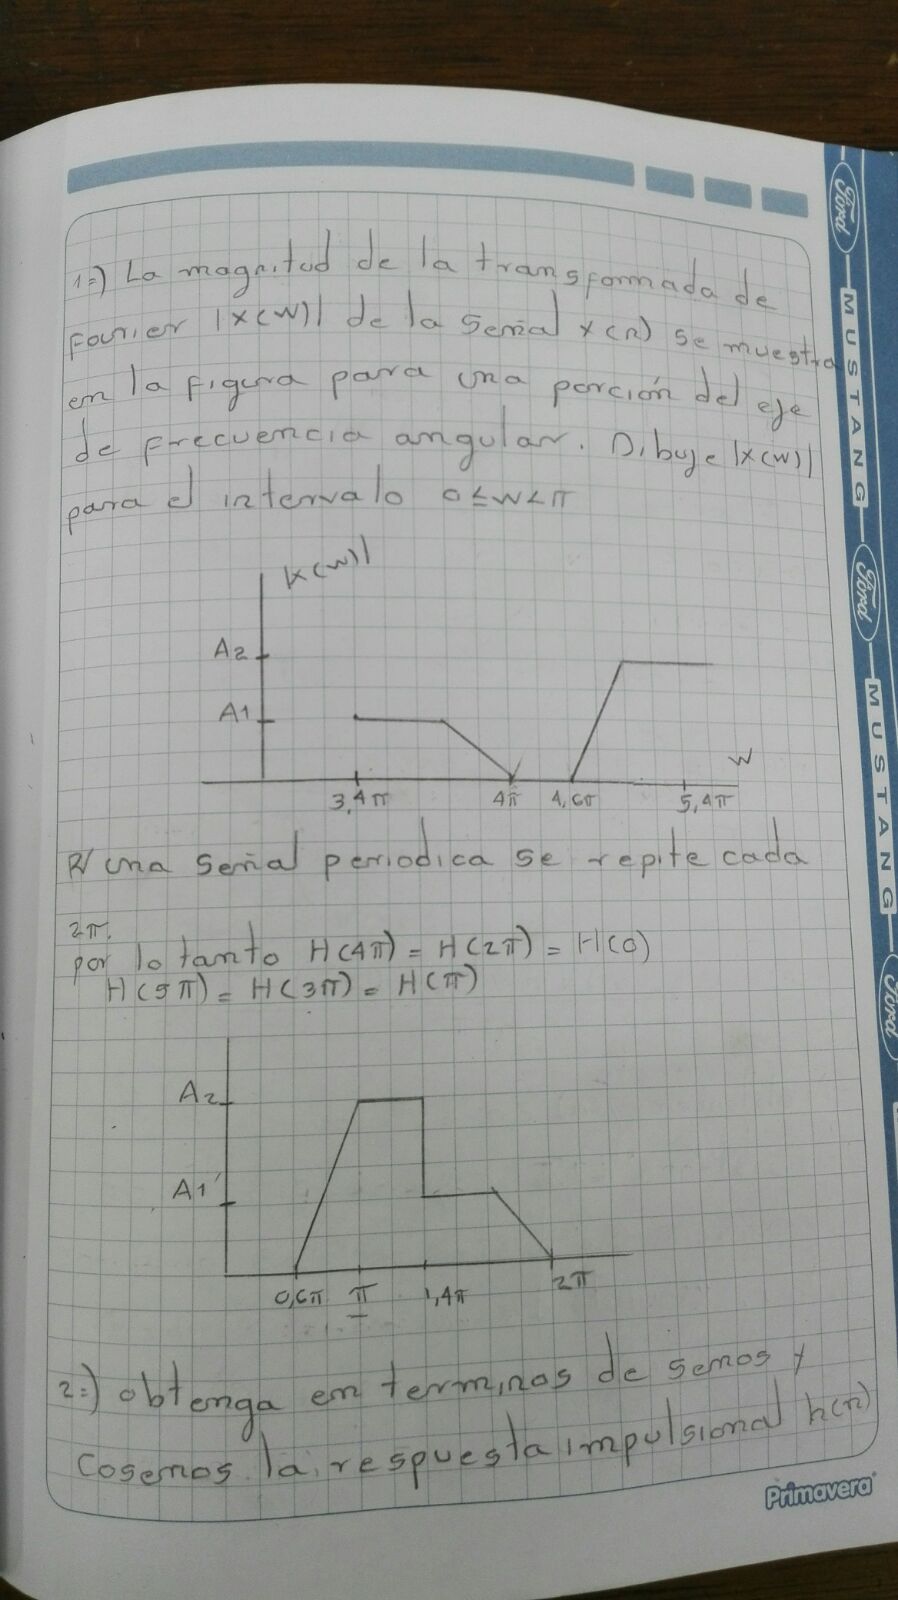 1=) La magnitud de la transformada de
Fourier |X(W)| de la Señal x(n) se muestra
en la figura para una porción del eje
de frecuencia angular. Dibuje |X(W)|
para el intervalo 0≤W<π
|X(W)|
A2
A1
W
3,4π 4π 4,6π 5,4π
R/ una Señal periodica se repite cada
2π.
por lo tanto H(4π) = H(2π) = H(0)
H(5π) = H(3π) = H(π)
A2
A1
0,6π π 1,4π 2π
2=) obtenga en terminos de senos y
Cosenos la respuesta impulsional h(n)
Primavera
Ford MUSTANG Ford MUSTANG Ford